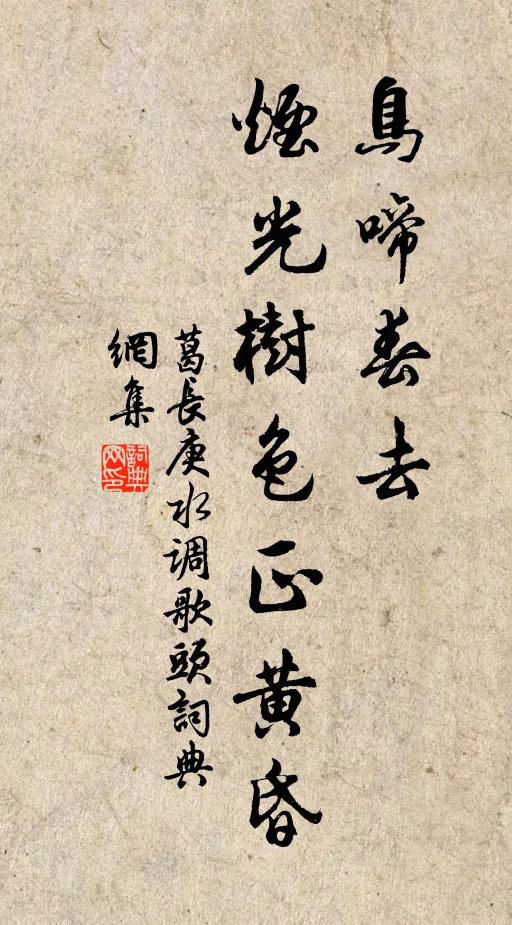 鳥啼春去
煙光樹色正黃昏
葛長庚水調歌頭詞典
網集
詞典
网印